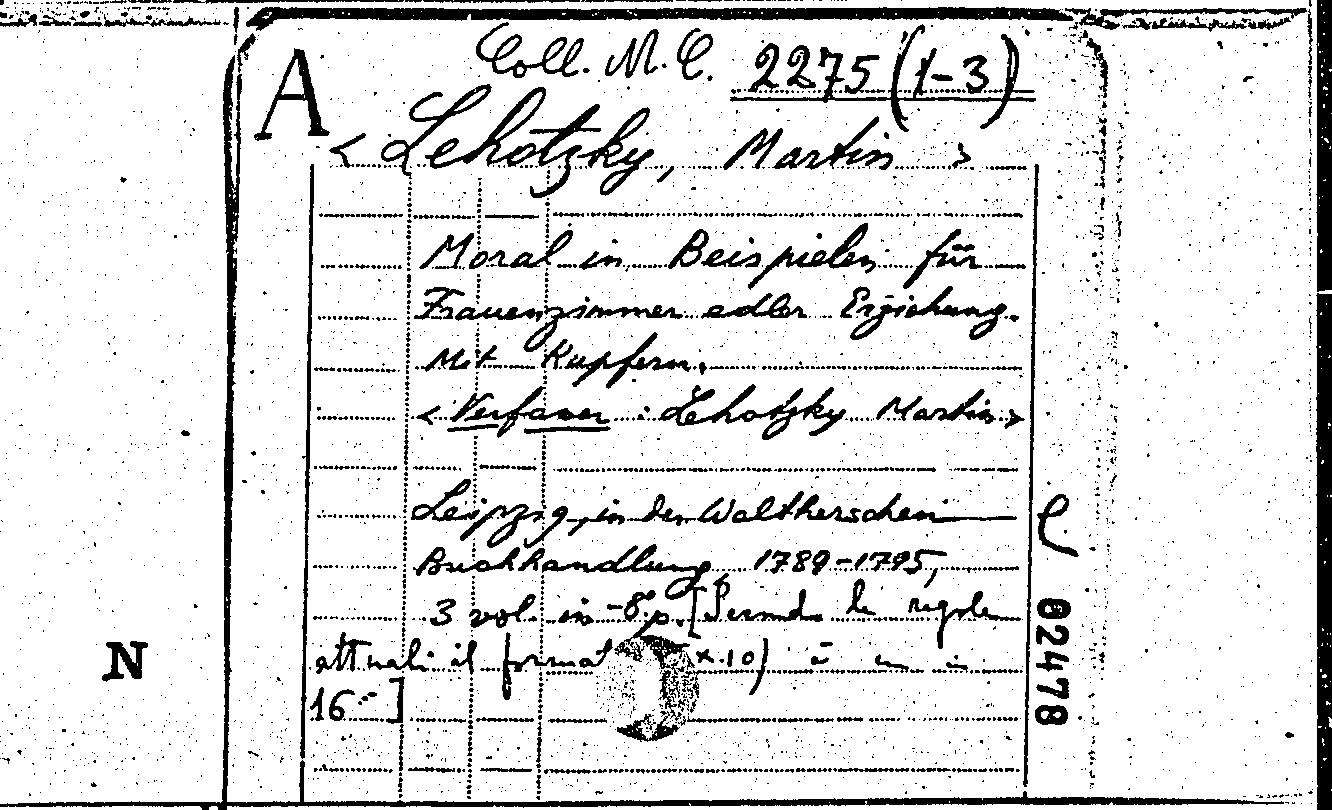 A
Coll. M. C. 2275 (1-3)
< Lehotzky, Martin >
Moral in Beispielen für
Frauenzimmer edler Erziehung.
Mit Kupfern.
< Verfasser : Lehotzky Martin >
Leipzig, in der Waltherschen
Buchhandlung, 1789-1795,
3 vol. in-8°p. [Secondo le regole
attuali il format x.10) è un in
16°]
N
02478